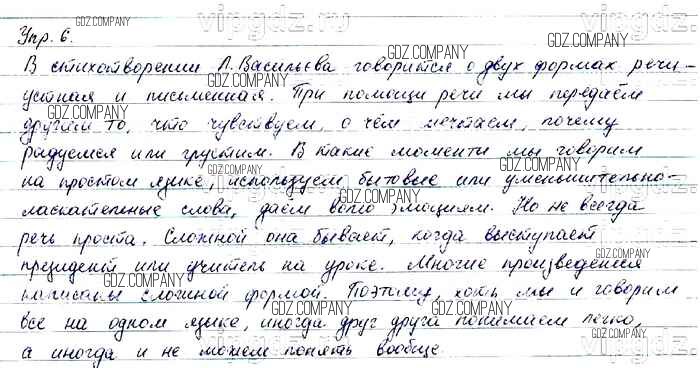 Упр. 6.
В стихотворении Л. Васильева говорится о двух формах речи -
устная и письменная. При помощи речи мы передаём
другим то, что чувствуем, о чём мечтаем, почему
радуемся или грустим. В такие моменты мы говорим
на простом языке, используем бытовые или уменьшительно-
ласкательные слова, даём волю эмоциям. Но не всегда
речь проста. Сложной она бывает, когда выступает
президент или учитель на уроке. Многие произведения
написаны сложной формой. Поэтому, хоть мы и говорим
все на одном языке, иногда друг друга понимаем легко,
а иногда и не можем понять вообще.
GDZ.COMPANY
vipgdz.ru